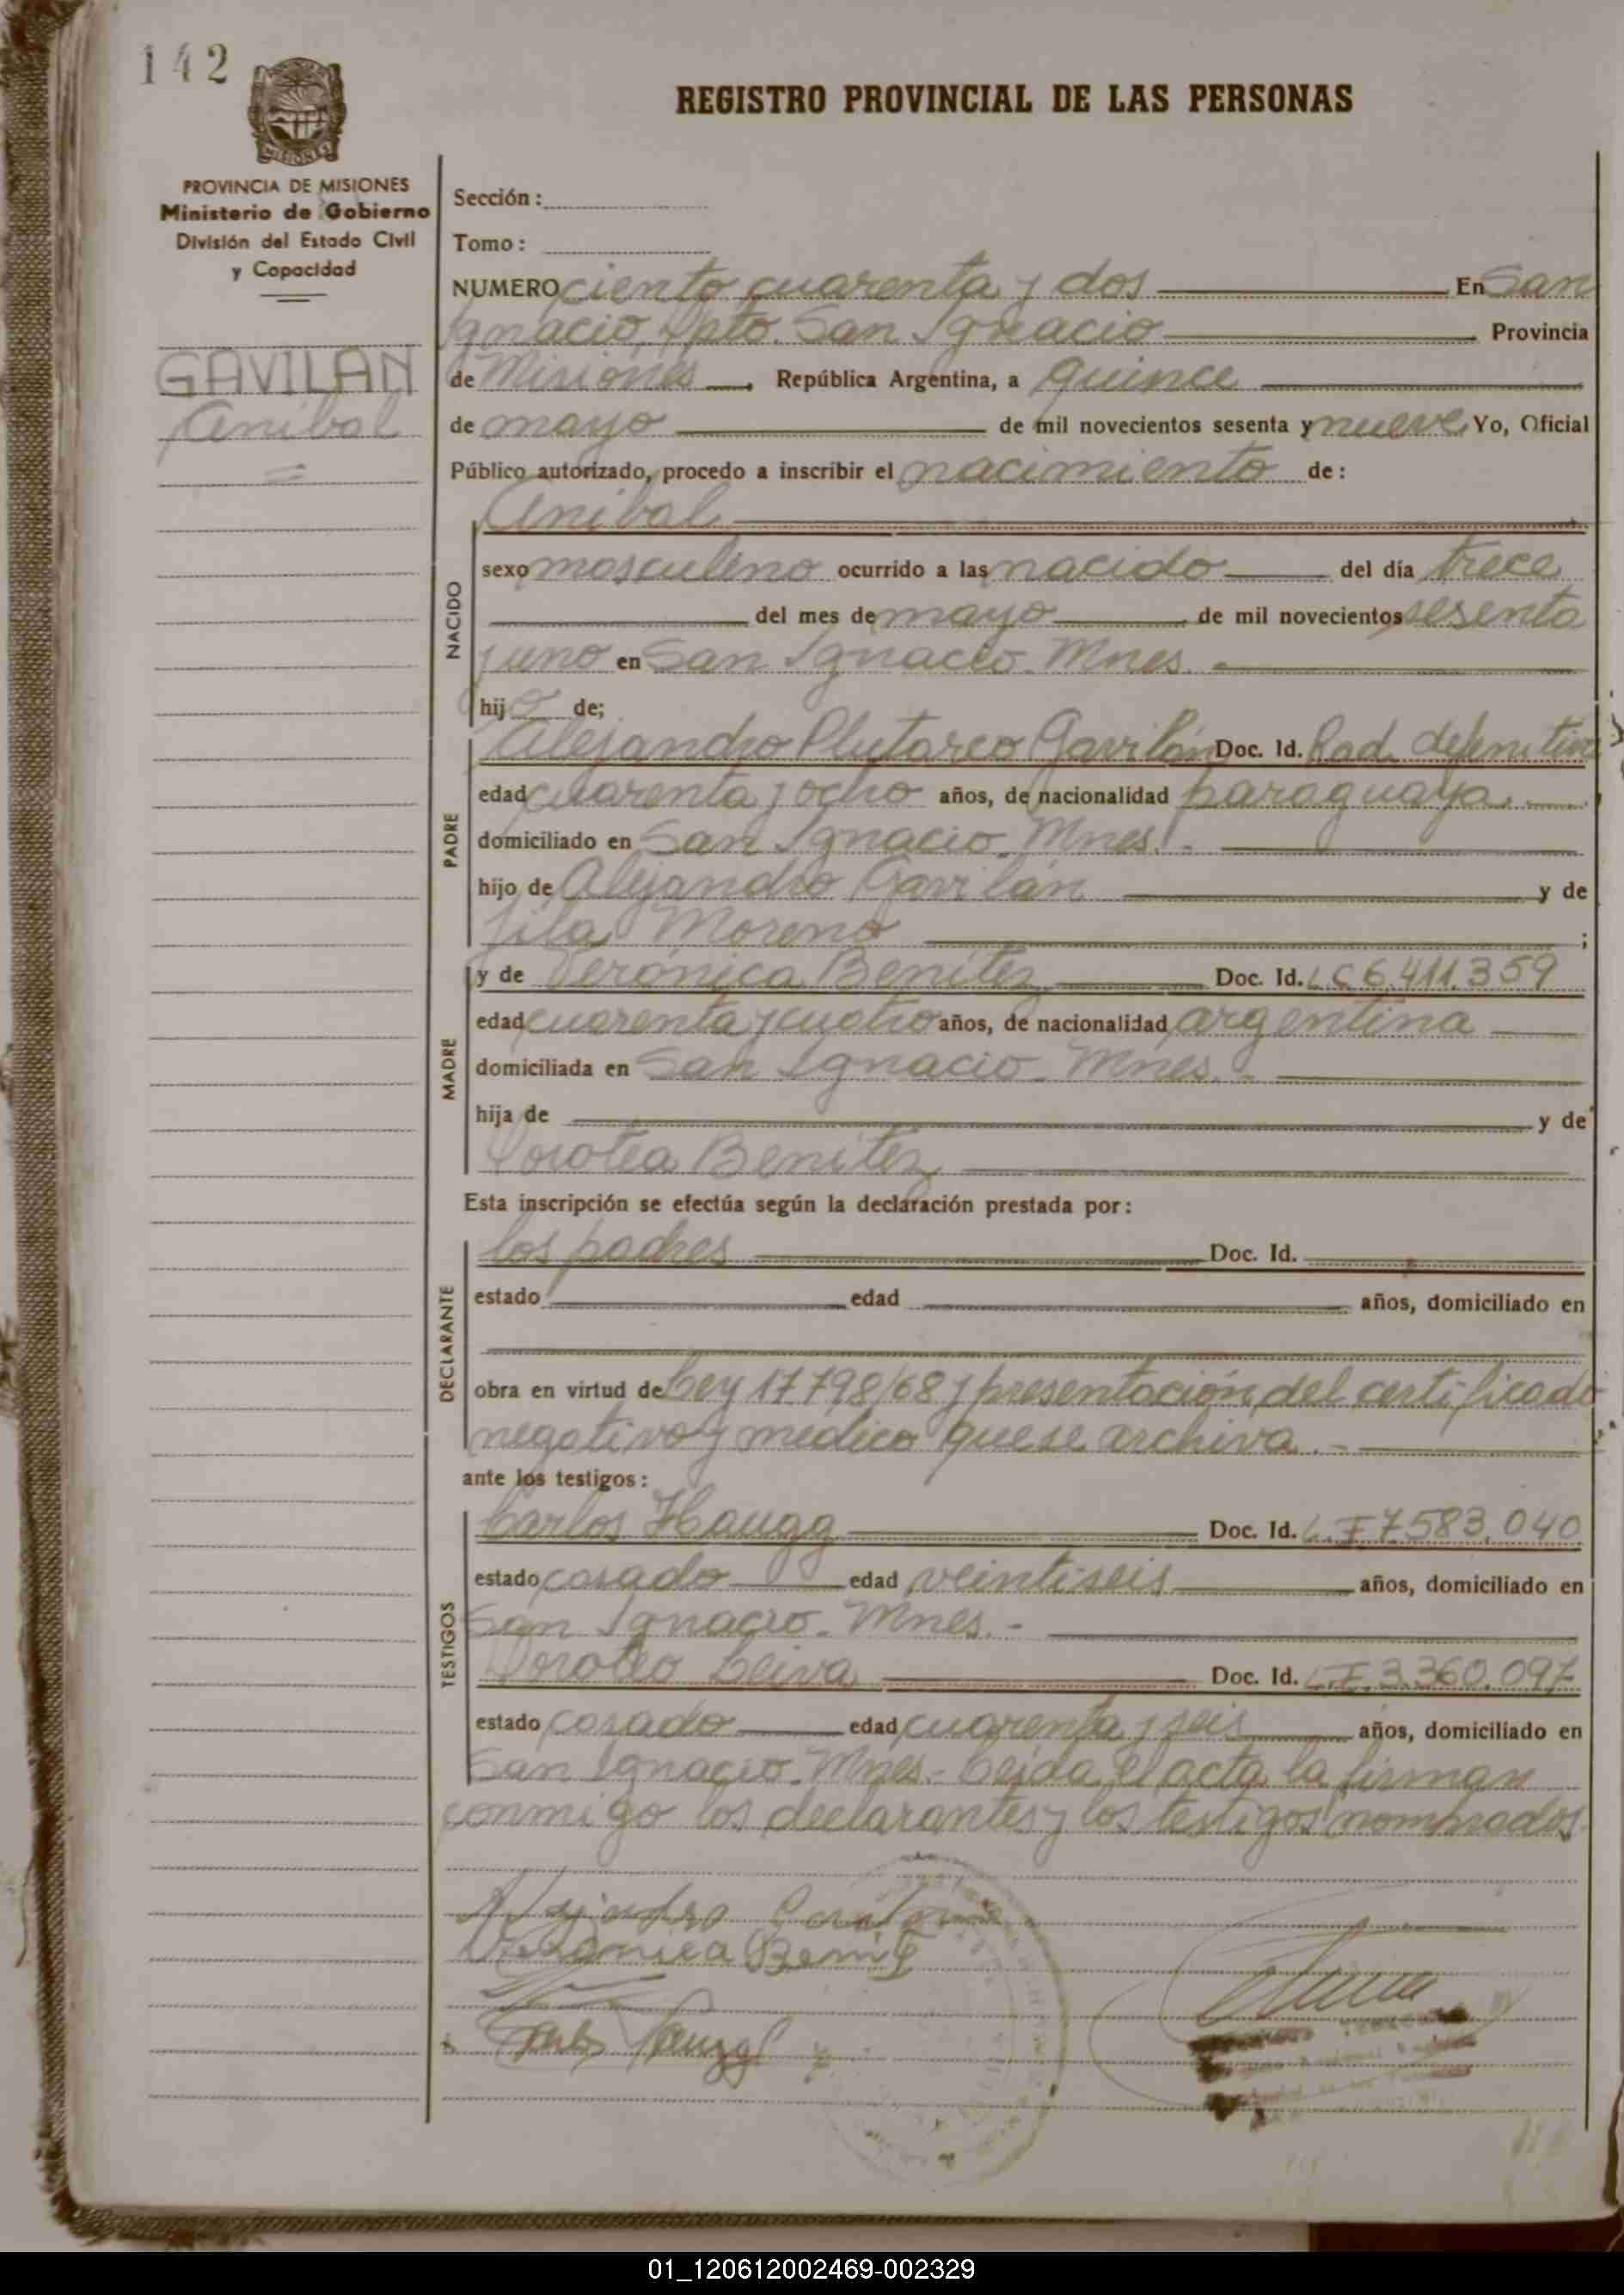 142
REGISTRO PROVINCIAL DE LAS PERSONAS
MISIONES
PROVINCIA DE MISIONES
Ministerio de Gobierno
División del Estado Civil
y Capacidad
GAVILAN
Anibal
Sección:
Tomo:
NUMERO ciento cuarenta y dos En San
Ignacio, Dpto. San Ignacio Provincia
de Misiones, República Argentina, a quince
de mayo de mil novecientos sesenta y nueve Yo, Oficial
Público autorizado, procedo a inscribir el nacimiento de:
Anibal
NACIDO
sexo masculino ocurrido a las nacido del día trece
del mes de mayo de mil novecientos sesenta
y uno en San Ignacio Mnes.
hijo de;
PADRE
Alejandro Plutarco Gavilán Doc. Id. Rad. definitiva
edad cuarenta y ocho años, de nacionalidad paraguaya
domiciliado en San Ignacio. Mnes.
hijo de Alejandro Gavilán y de
Moreno ;
MADRE
y de Verónica Benitez Doc. Id. LC 6.411.359
edad cuarenta y cuatro años, de nacionalidad argentina
domiciliada en San Ignacio - Mnes.
hija de y de
Dorotea Benitez
Esta inscripción se efectúa según la declaración prestada por:
DECLARANTE
los padres Doc. Id.
estado edad años, domiciliado en
obra en virtud de Ley 17798/68 y presentación del certificado
negativo y médico que se archiva.-
ante los testigos:
TESTIGOS
Carlos Haugg Doc. Id. L.E 7.583.040
estado casado edad veintiseis años, domiciliado en
San Ignacio - Mnes.-
Doroteo Leiva Doc. Id. L.E. 3.360.097
estado casado edad cuarenta y seis años, domiciliado en
San Ignacio - Mnes.- Leida el acta la firman
conmigo los declarantes y los testigos nombrados
Alejandro
Veronica
01_120612002469-002329